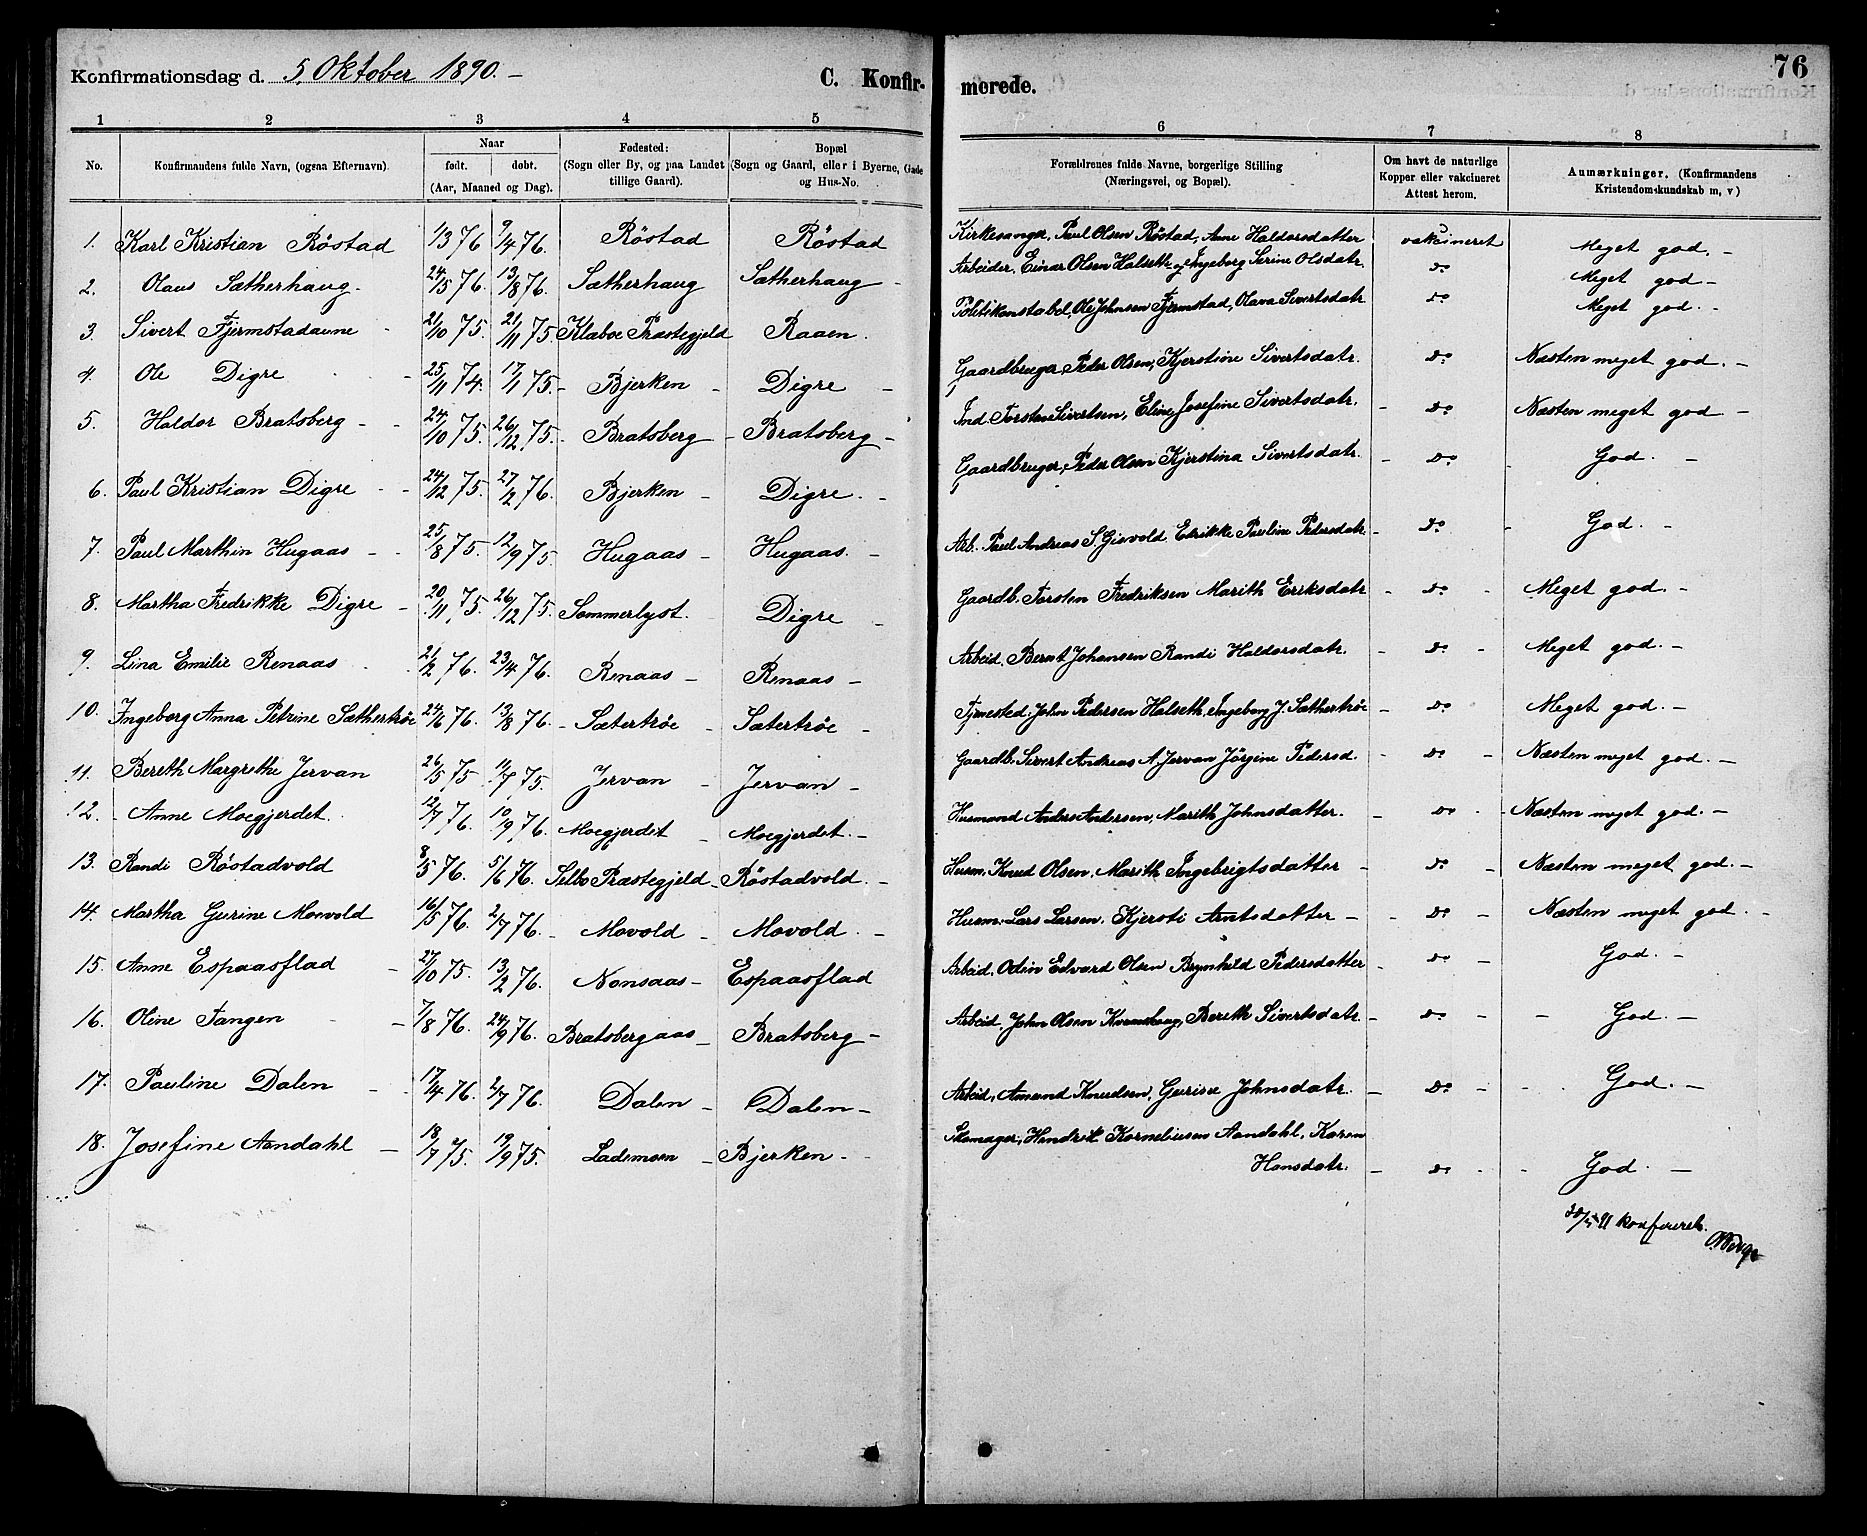 Konfirmationsdag d. 5, Oktober 1890. –
C. Konfir-
morede.
76
1 2 3 4 5 6 7 8
No.
Konfirmandens fulde Navn, (ogsaa Efternavn)
Naar
født. døbt.
(Aar, Maaned og Dag).
Fødested:
(Sogn eller By, og paa Landet
tillige Gaard).
Bopæl
(Sogn og Gaard, eller i Byerne, Gade
og Hus-No.
Forældrenes fulde Navne, borgerlige Stilling
(Næringsvei, og Bopæl).
Om havt de naturlige
Kopper eller vakcineret
Attest herom.
Anmærkninger. (Konfirmandens
Kristendomskundskab m, v)
1. Karl Kristian Röstad 1/3 76 9/4 76. Röstad Röstad Kirkesanger, Paul Olsen Röstad, Anne Haldorsdatter vakcineret Meget god. –
2. Olaus Sætherhaug – 24/5 76. 13/8 76. Sætherhaug Sætherhaug – Arbeider, Einar Olsen Halseth og Ingeborg Serine Olsdatr. do Meget god –
3. Sivert Fjermstadaune 21/10 75. 21/11 75 Klæboe Præstegjeld Raaen. Politikonstabel, Ole Johnsen Fjermstad, Olava Sivertsdatr do Meget god. –
4. Ole Digre 25/11 74. 17/1 75 – Bjerken – Digre – Gaardbruger, Peder Olsen, Kjerstine Sivertsdatr. do Næsten meget god. –
5. Haldor Bratsberg – 24/10 75. 26/12 75. – Bratsberg – Bratsberg – Ind. Torsten Sivertsen, Eline Josefine Sivertsdatr. – do – Næsten meget god –
6. Paul Kristian Digre 24/12 75. 27/2 76. Bjerken – Digre. – Gaardbruger, Peder Olsen Kjerstina Sivertsdatr. – do – God. –
7. Paul Marthin Hugaas – 25/8 75. 12/9 75. Hugaas – Hugaas. – Arb. Paul Andreas S. Gisvold Edrikke Pauline Pedersdatr – do – God. –
8. Martha Fredrikke Digre – 20/11 75. 26/12 75. Sommerlyst. Digre – Gaardb. Torsten Fredriksen Marith Eriksdatr – do – Meget god. –
9. Lina Emilie Renaas 21/2 76. 23/4 76. Renaas – Renaas – Arbeid. Bernt Johansen Randi Haldorsdatr. – do – Meget god. –
10. Ingeborg Anna Petrine Sæthertröe 24/6 76. 13/8 76. – Sætertröe – Sætertröe – Tjenested, John Pedersen Halseth, Ingeborg J. Sæthertröe – do – Meget god. –
11. Bereth Margrethe Jervan 26/5 75 11/7 75. Jervan – Jervan – Gaardb. Sivert Andreas A. Jervan Jörgine Pedersd – do – Næsten meget god. –
12. – Anne Moegjerdet. 12/7 76. 10/9 76. Moegjerdet – Moegjerdet. – Husmand Anders Andersen, Marith Johnsdatter. – do – Næsten meget god. –
13. Randi Röstadvold 8/5 76. 5/6 76. Selbo Præstegjeld – Röstadvold. – Husm. Knud Olsen, Marith Ingebrigtsdatter – do – Næsten meget god. –
14. Martha Gurine Moevold 16/5 76. 2/7 76. – Movold – Movold. – Husm. Lars Larsen. Kjersti Arntsdatter – – do – Næsten meget god. –
15. Anne Espaasflad – 27/10 75. 13/2 76. Nonsaas – Espaasflad Arbeid. Odin Edvard Olsen Brynhild Pedersdatter – do – God. –
16. Oline Tangen – 7/8 76. 24/9 76. Bratsbergaas – Bratsberg – Arbeid. John Olsen Kvernhaug, Bereth Sivertsdatr. – do – – God. –
17. Pauline Dalen – 17/4 76. 2/7 76. Dalen – Dalen – Arbeid, Amund Knudsen, Guruse Johnsdatr. – do – – God. –
18. Josefine Aandahl – 18/7 75. 19/9 75. Lademoen – Bjerken – – Skomager, Hendrik Korneliusen Aandahl, Karen
Hansdatr. – do – – God. –
konfereret.